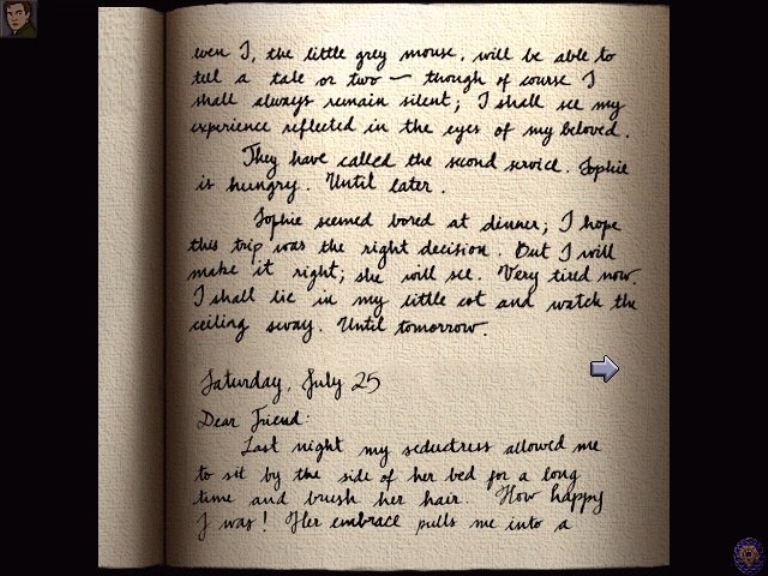 even I, the little grey mouse, will be able to
tell a tale or two — though of course I
shall always remain silent; I shall see my
experience reflected in the eyes of my beloved.
They have called the second service. Sophie
is hungry. Until later.
Sophie seemed bored at dinner; I hope
this trip was the right decision. But I will
make it right; she will see. Very tired now.
I shall lie in my little cot and watch the
ceiling sway. Until tomorrow.
Saturday, July 25
Dear Friend:
Last night my seductress allowed me
to sit by the side of her bed for a long
time and brush her hair. How happy
I was! Her embrace pulls me into a